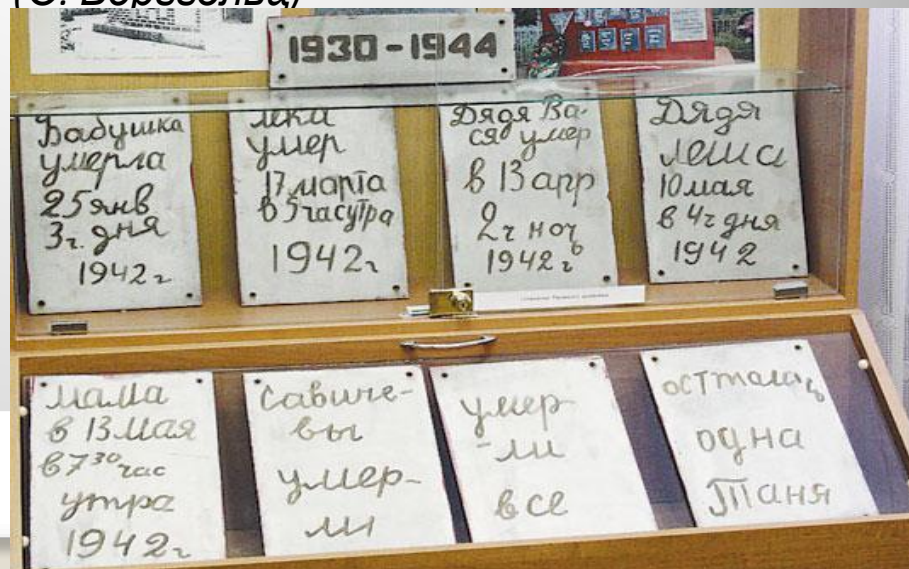 (О. Берггольц)
1930-1944
Бабушка
умерла
25 янв
3ч. дня
1942г
лека
умер
17 марта
в 5 час утра
1942г
Дядя Ва-
ся умер
в 13 апр
2ч ночь
1942г
Дядя
Леша
10 мая
в 4ч дня
1942
мама
в 13 мая
в 7 30 час
утра
1942г
Савиче-
вы
умер-
ли
умер-
-ли
все
осталась
одна
Таня